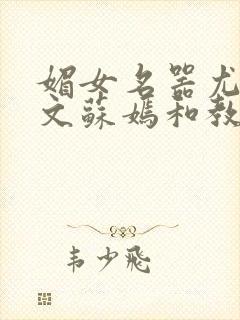 媚女名器尤
文蘇媽和教
韦少飛